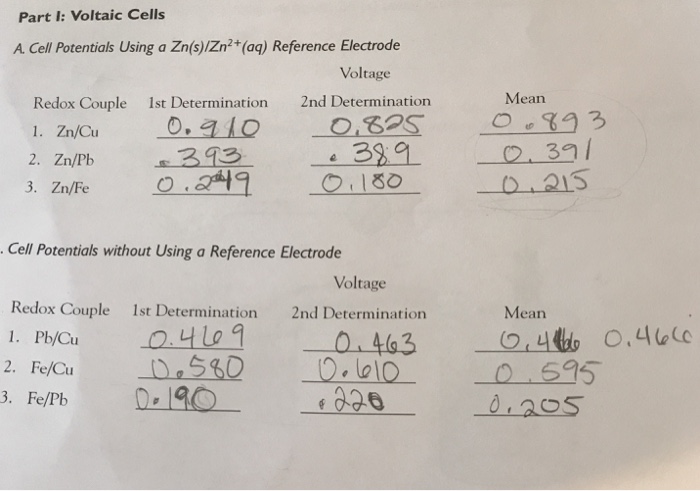 Part I: Voltaic Cells
A. Cell Potentials Using a Zn(s)/Zn²⁺(aq) Reference Electrode
Voltage
Redox Couple 1st Determination 2nd Determination Mean
1. Zn/Cu 0.910 0.825 0.893
2. Zn/Pb .393 .389 0.391
3. Zn/Fe 0.249 0.180 0.215
. Cell Potentials without Using a Reference Electrode
Voltage
Redox Couple 1st Determination 2nd Determination Mean
1. Pb/Cu 0.469 0.463 0.466
2. Fe/Cu 0.580 0.610 0.595
3. Fe/Pb 0.190 .220 0.205